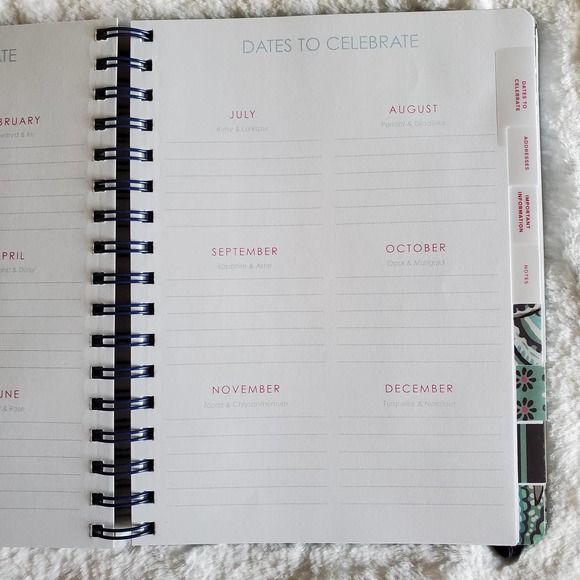 ATE
BRUARY
APRIL
Daisy
UNE
& Rose
DATES TO CELEBRATE
JULY
Ruby & Larkspur
AUGUST
Peridot & Gladiolus
SEPTEMBER
Sapphire & Aster
OCTOBER
Opal & Marigold
NOVEMBER
Topaz & Chrysanthemum
DECEMBER
Turquoise & Narcissus
DATES TO
CELEBRATE
ADDRESSES
IMPORTANT
INFORMATION
NOTES